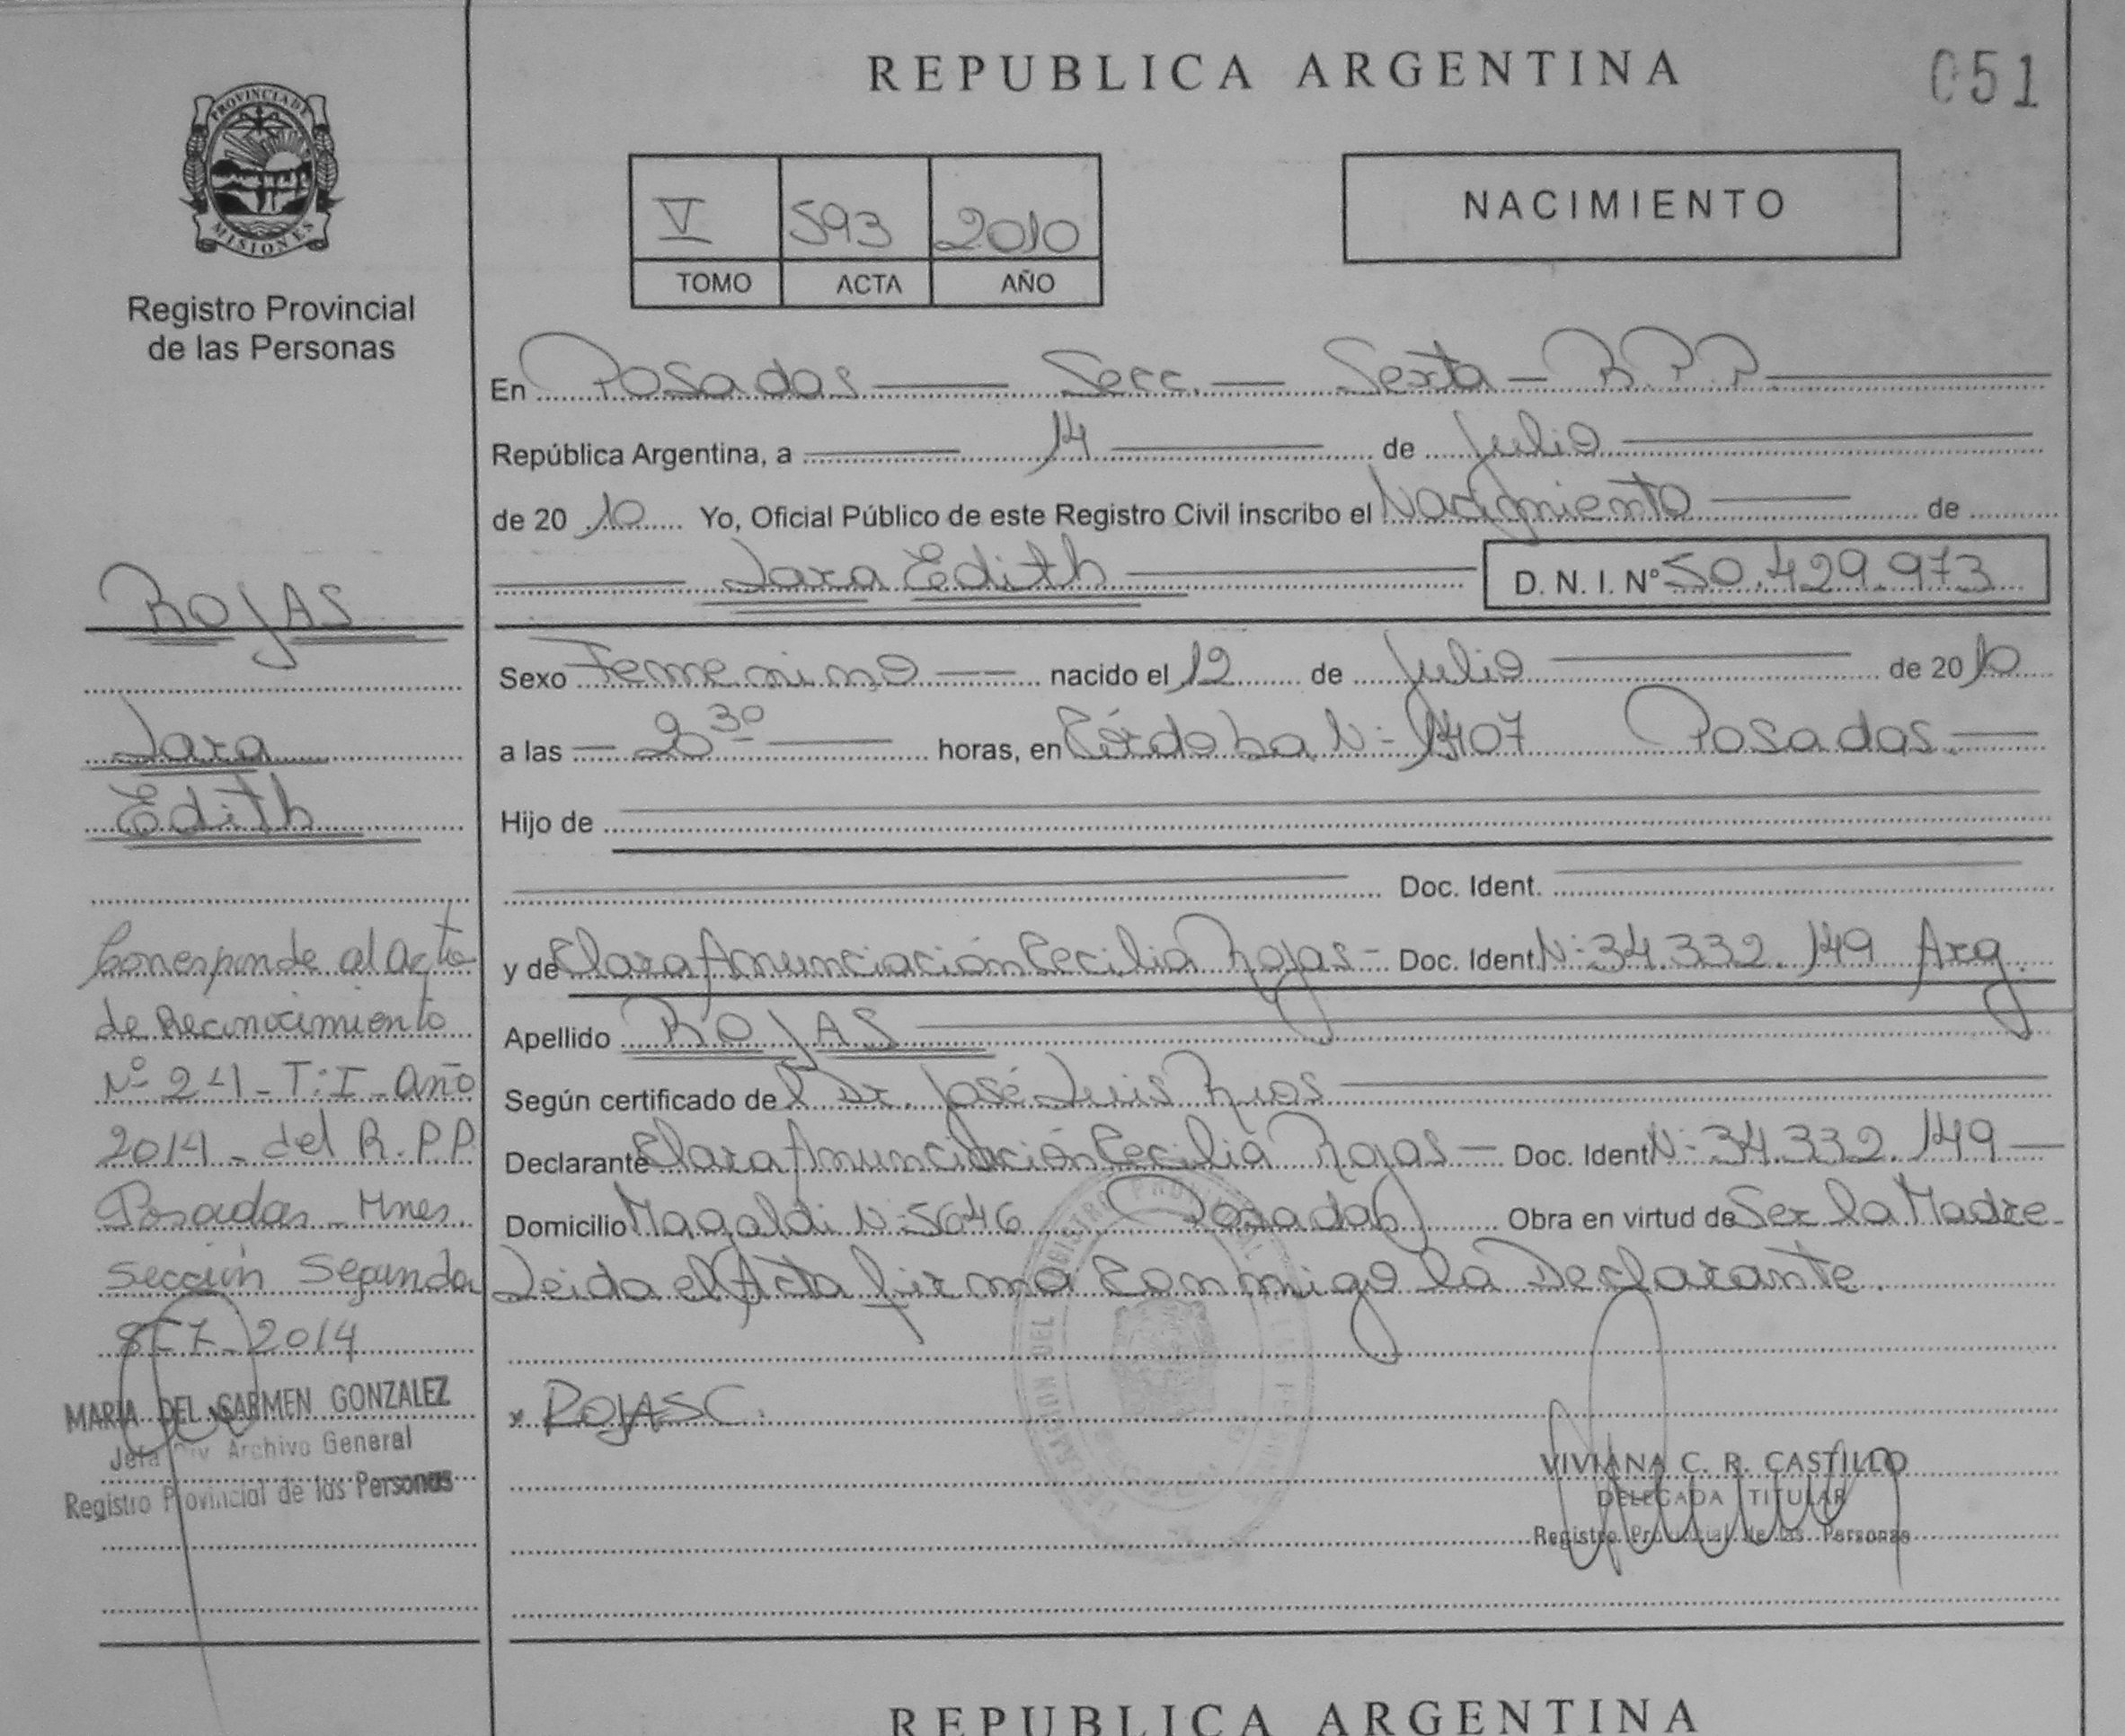 REPUBLICA ARGENTINA
051
PROVINCIA DE
MISIONES
Registro Provincial
de las Personas
V 593 2010
TOMO ACTA AÑO
NACIMIENTO
En Posadas Secc. Sexta - R.P.P.
República Argentina, a 14 de Julio
de 20 10 Yo, Oficial Público de este Registro Civil inscribo el Nacimiento de
Lara Edith D. N. I. Nº 50.429.973
Sexo Femenino nacido el 12 de Julio de 20 10
a las 20 30 horas, en Córdoba N: 1407 Posadas.
Hijo de
Doc. Ident.
y de Clara Anunciación Cecilia Rojas - Doc. Ident. N: 34.332.149 Arg.
Apellido ROJAS
Según certificado del Dr. José Luis Rios
Declarante Clara Anunciación Cecilia Rojas - Doc. Ident N: 34.332.149
Domicilio Magaldi N: 5646 Posadas Obra en virtud de Ser la Madre
Leida el Acta firma Conmigo la Declarante.
x ROJAS C.
VIVIANA C. R. CASTILLO
DELEGADA TITULAR
Registro Provincial de las Personas
ROJAS
Lara
Edith
Corresponde al Acta
de Reconocimiento
Nº 241 - T: I - Año
2014 - del R.P.P.
Posadas - Mnes.
Sección Segunda
2014
MARIA DEL CARMEN GONZALEZ
Jefa Div Archivo General
Registro Provincial de las Personas
REPUBLICA ARGENTINA